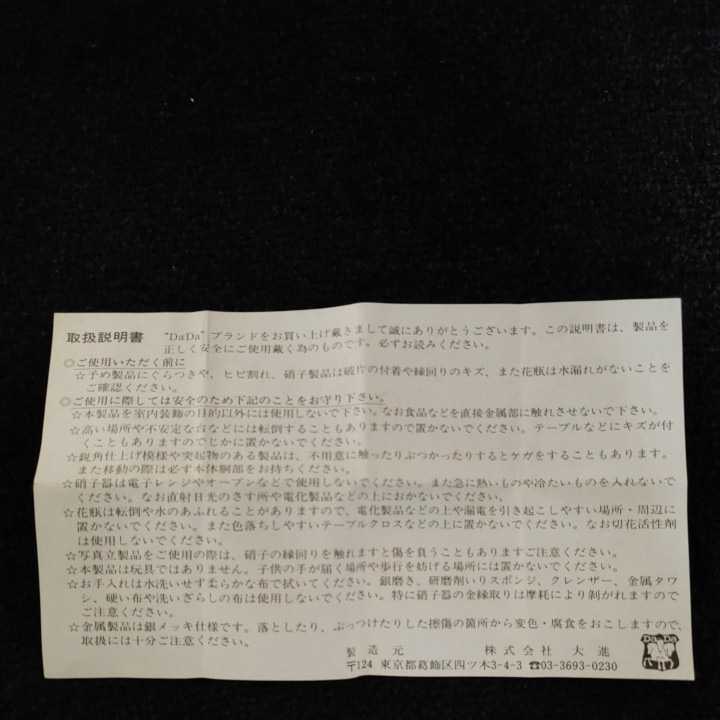 取扱説明書 "DaDa"ブランドをお買い上げ戴きまして誠にありがとうございます。この説明書は、製品を
正しく安全にご使用戴く為のものです。必ずお読みください。
◎ご使用いただく前に
☆予め製品にぐらつきや、ヒビ割れ、硝子製品は破片の付着や縁回りのキズ、また花瓶は水漏れがないことを
ご確認ください。
◎ご使用に際しては安全のため下記のことをお守り下さい。
☆本製品を室内装飾の目的以外には使用しないで下さい。なお食品などを直接金属部に触れさせないで下さい。
☆高い場所や不安定な台などには転倒することもありますので置かないでください。テーブルなどにキズが付
くこともありますのでじかに置かないでください。
☆鋭角仕上げ模様や突起物のある製品は、不用意に触ったりぶつかったりするとケガをすることもあります。
また移動の際は必ず本体胴部をお持ちください。
☆硝子器は電子レンジやオーブンなどで使用しないでください。また急に熱いものや冷たいものを入れないで
ください。なお直射日光のさす所や電化製品などの上におかないでください。
☆花瓶は転倒や水のあふれることがありますので、電化製品などの上や漏電を引き起こしやすい場所・周辺に
置かないでください。また色落ちしやすいテーブルクロスなどの上に置かないでください。なお切花活性剤
は使用しないでください。
☆写真立製品をご使用の際は、硝子の縁回りを触れますと傷を負うこともありますご注意ください。
☆本製品は玩具ではありません。子供の手が届く場所や歩行を妨げる場所には置かないでください。
☆お手入れは水洗いせず柔らかな布で拭いてください。銀磨き、研磨剤いりスポンジ、クレンザー、金属タワ
シ、硬い布や洗いざらしの布は使用しないでください。特に硝子器の金縁取りは摩耗により剝がれますので
ご注意ください。
☆金属製品は銀メッキ仕様です。落としたり、ぶっつけたりした擦傷の箇所から変色・腐食をおこしますので、
取扱には十分ご注意ください。
製造元 株式会社 大進
〒124 東京都葛飾区四ツ木3-4-3 ☎03-3693-0230
DaDa